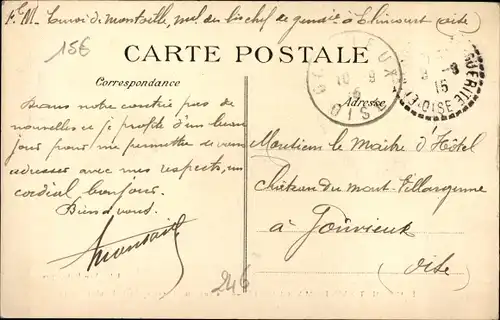 F.M. Envoi de Montaille, mal des logis chef de gendie à Elincourt (Oise)
15€
CARTE POSTALE
Correspondance
Adresse
GOUVIEUX
10 9
15
OISE
9 -9
15
OISE
Dans notre contrée pas de
nouvelles et je profite d'un beau
jour pour me permettre de vous
adresser avec mes respects, un
cordial bonjour.
Bien à vous.
Monsieur le Maître d'Hôtel
Château du Mont-Villargenne
à Gouvieux
(Oise)
246